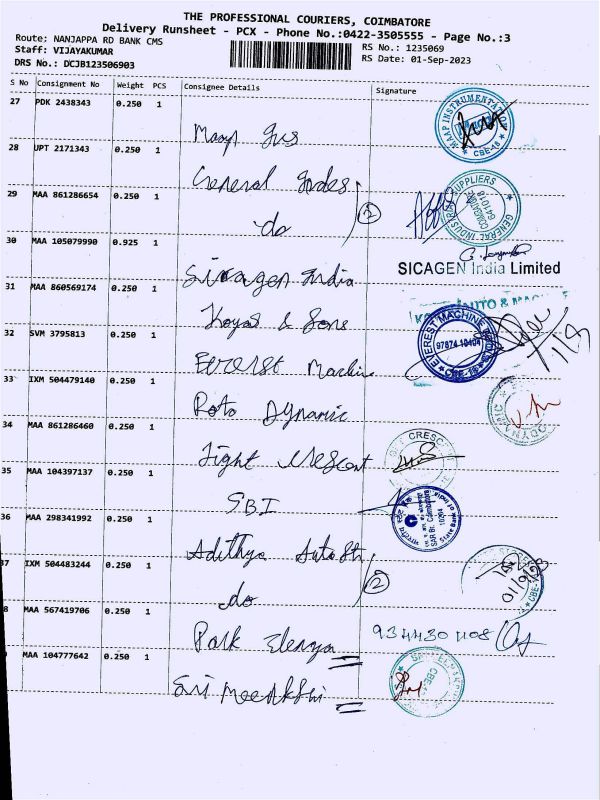 THE PROFESSIONAL COURIERS, COIMBATORE
Delivery Runsheet - PCX - Phone No.:0422-3505555 - Page No.:3
Route: NANJAPPA RD BANK CMS
RS No.: 1235069
Staff: VIJAYAKUMAR
RS Date: 01-Sep-2023
DRS No.: DCJB123506903
S No Consignment No Weight PCS Consignee Details Signature
27 PDK 2438343 0.250 1
MAAP INSTRUMENTATION CBE-18
28 UPT 2171343 0.250 1
General
29 MAA 861286654 0.250 1
do 2
GENERAL INDUSTRIAL SUPPLIERS COIMBATORE 641018
30 MAA 105079990 0.925 1
Sicagen India
SICAGEN India Limited
31 MAA 860569174 0.250 1
Koyas & Sons
AUTO &
32 SVM 3795813 0.250 1
Everest Machine
EVEREST MACHINE 97874 10404 CBE-18
33 IXM 504479140 0.250 1
Roto Dynamic
34 MAA 861286460 0.250 1
CRESCENT
35 MAA 104397137 0.250 1
SBI
State Bank of India
36 MAA 298341992 0.250 1
Adithya Auto
37 IXM 504483244 0.250 1
do 2
8 MAA 567419706 0.250 1
Park Elanza
MAA 104777642 0.250 1
Sri Meenakshi